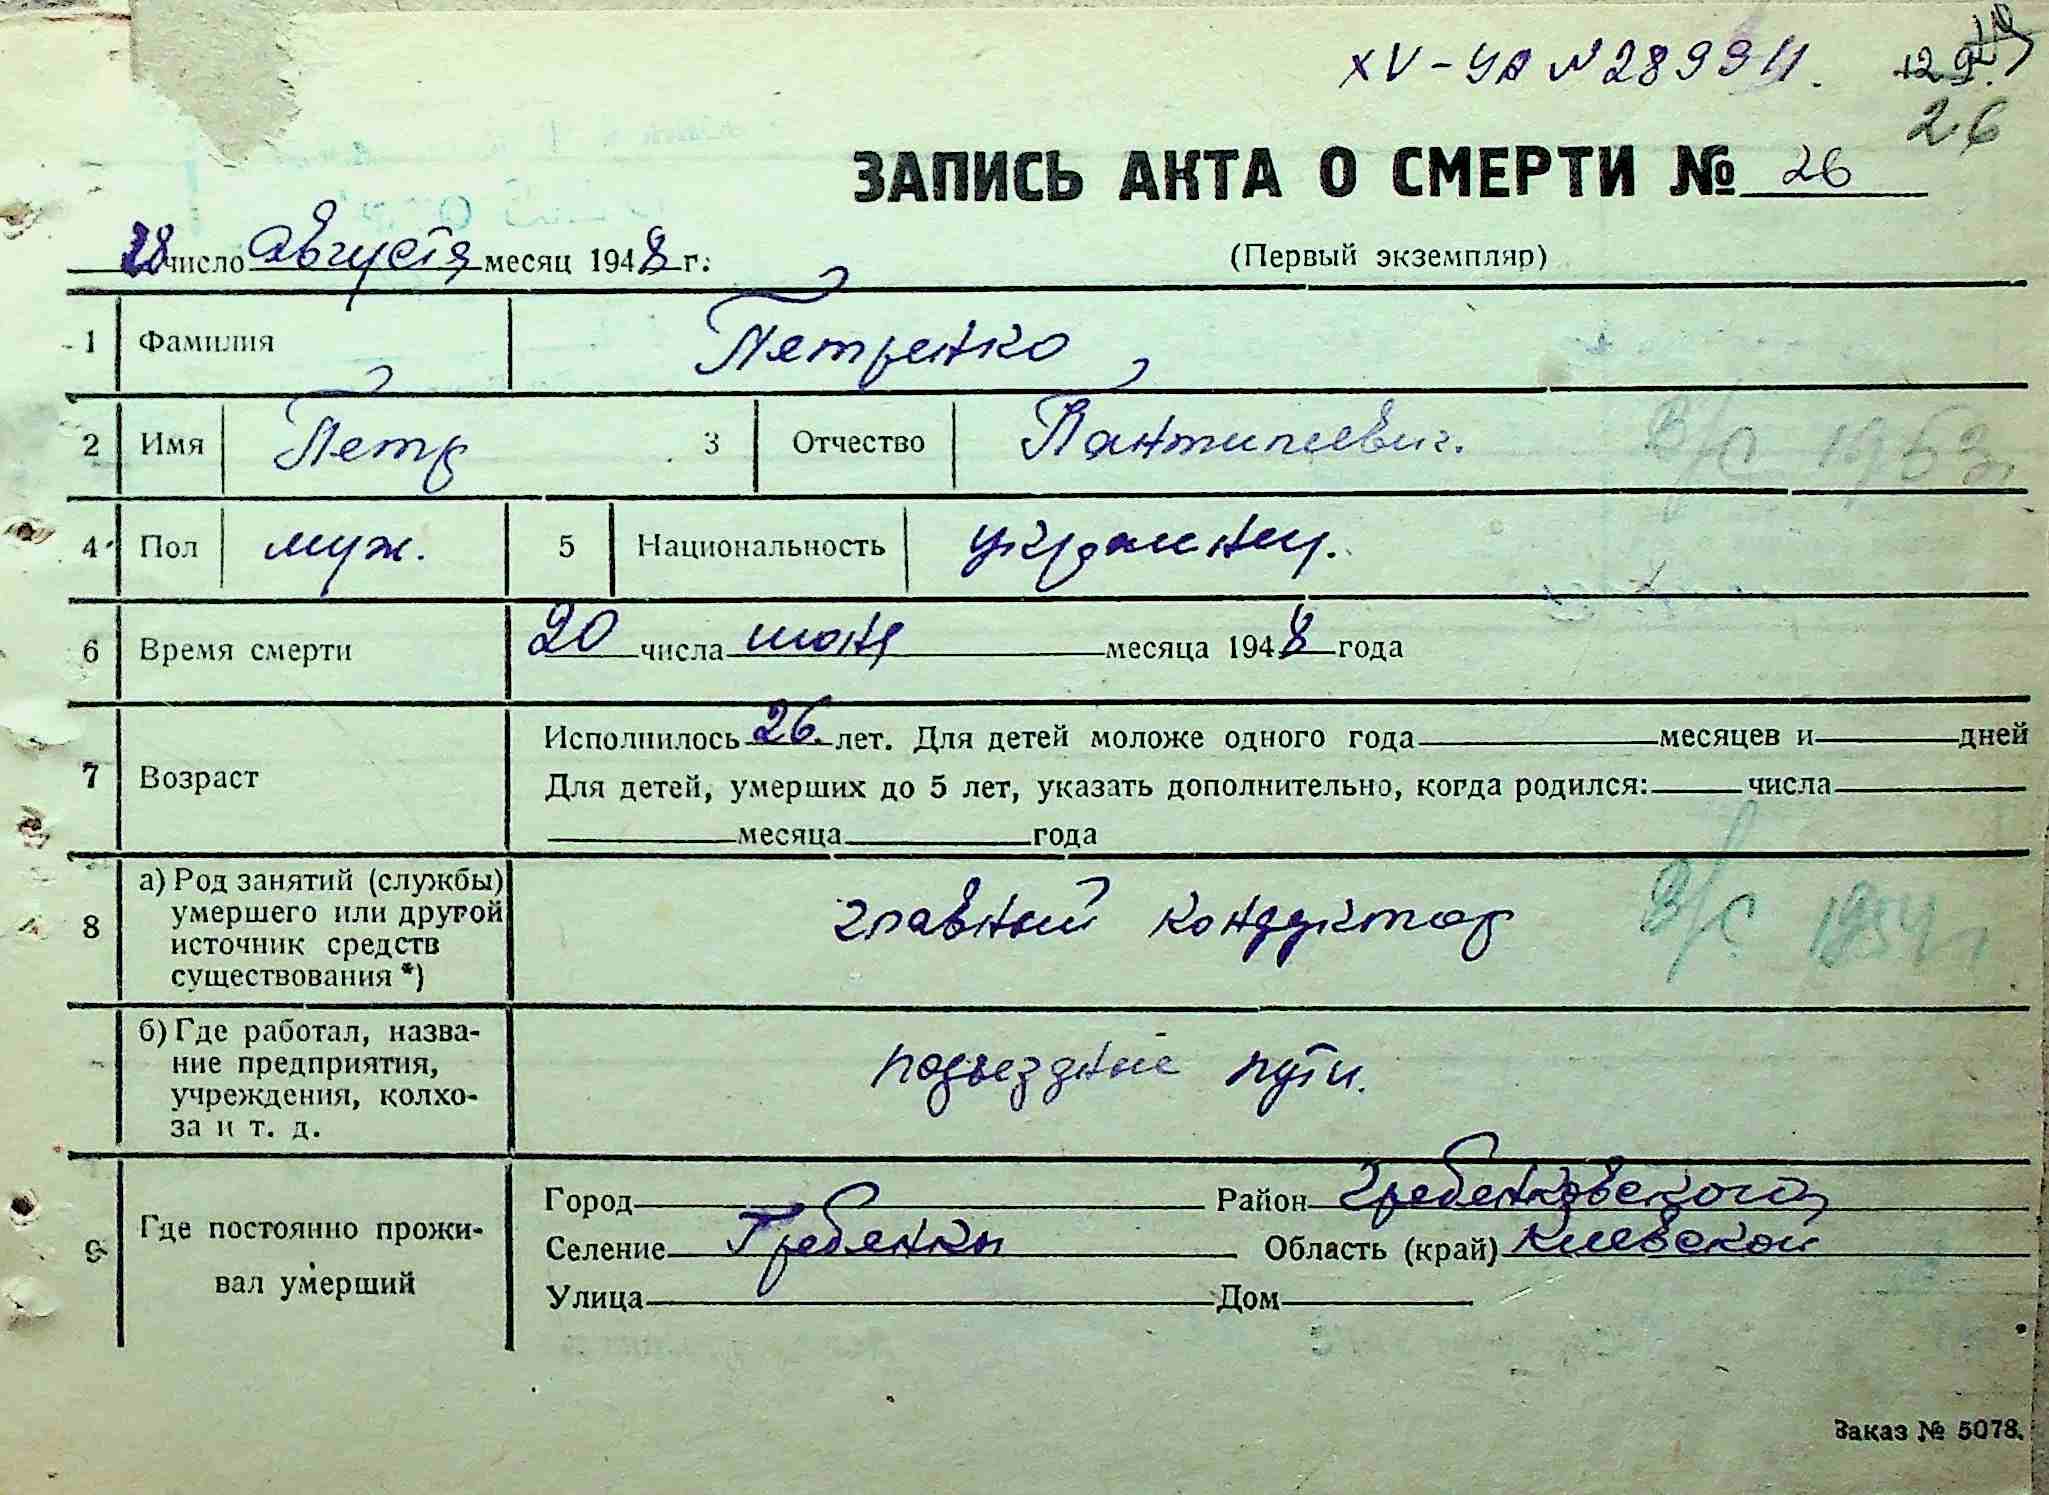 XV-УА №289911.
26
ЗАПИСЬ АКТА О СМЕРТИ № 26
28 число августа месяц 1948 г.
(Первый экземпляр)
1 Фамилия Петренко
2 Имя Петр 3 Отчество Пантилеевич.
В/С 1953г.
4 Пол муж. 5 Национальность украинец.
6 Время смерти 20 числа июня месяца 1948 года
7 Возраст Исполнилось 26 лет. Для детей моложе одного года месяцев и дней
Для детей, умерших до 5 лет, указать дополнительно, когда родился: числа
месяца года
8 а) Род занятий (службы)
умершего или другой
источник средств
существования *)
главный кондуктор
В/С 1954г
б) Где работал, назва-
ние предприятия,
учреждения, колхо-
за и т. д.
подъездные пути.
9 Где постоянно прожи-
вал умерший
Город Район Гребенковского
Селение Гребенки Область (край) Киевской
Улица Дом
Заказ № 5078.